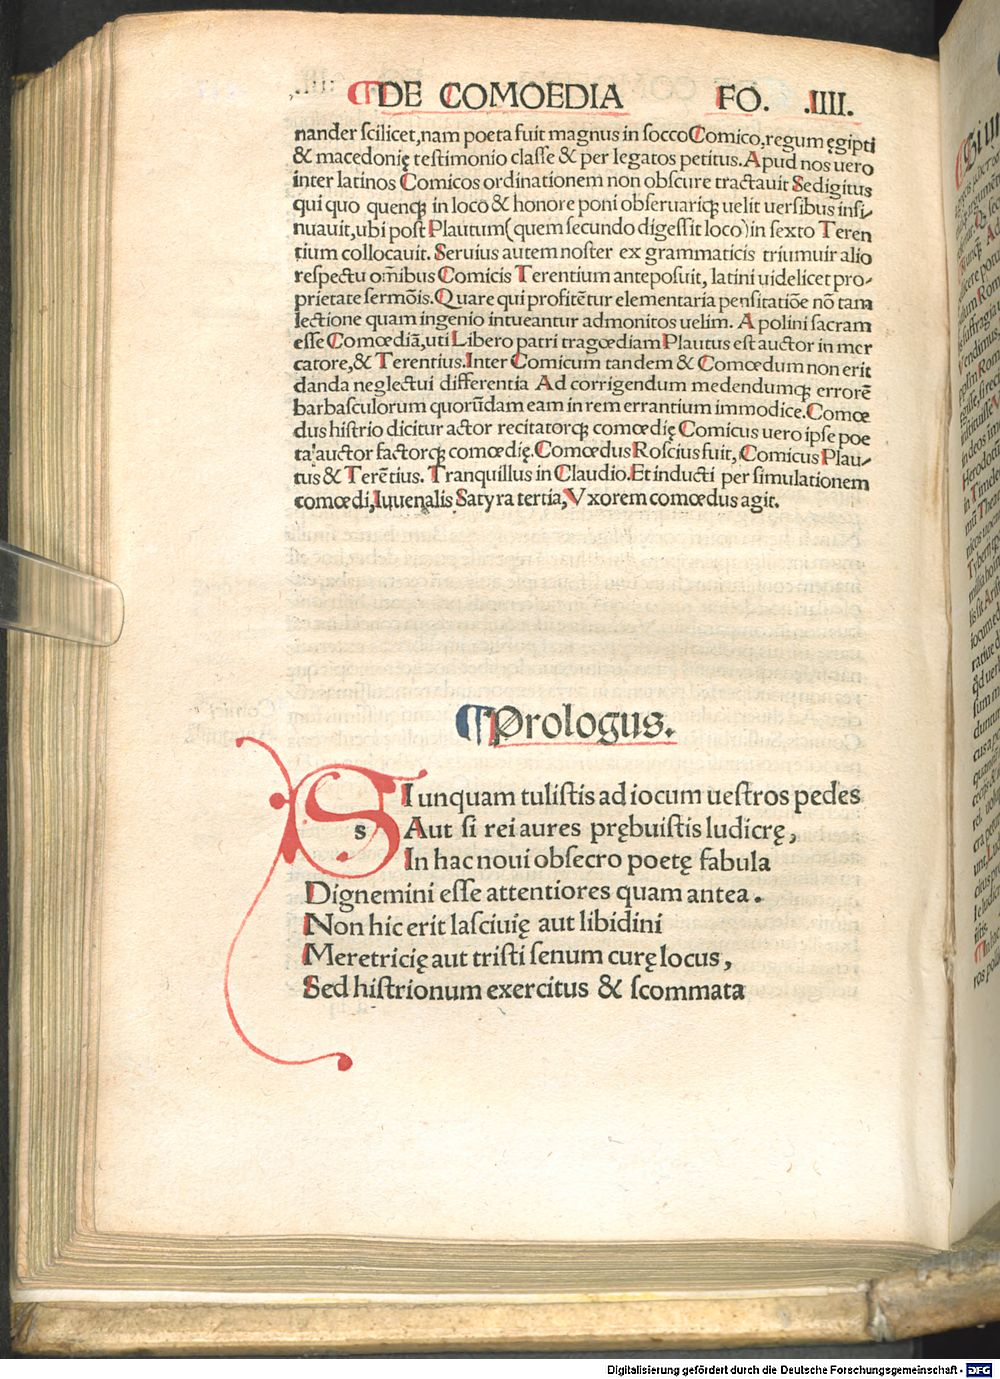 ¶DE COMOEDIA FO. .IIII.
nander scilicet,nam poeta fuit magnus in socco Comico,regum ęgipti
& macedonię testimonio classe & per legatos petitus. Apud nos uero
inter latinos Comicos ordinationem non obscure tractauit Sedigitus
qui quo quenq; in loco & honore poni obseruariq; uelit uersibus insi⸗
nuauit,ubi post Plautum(quem secundo digessit loco)in sexto Teren
tium collocauit. Seruius autem noster ex grammaticis triumuir alio
respectu om̃ibus Comicis Terentium anteposuit, latini uidelicet pro⸗
prietate sermõis.Quare qui profitẽtur elementaria pensitatiõe nõ tam
lectione quam ingenio intueantur admonitos uelim. Apolini sacram
esse Comœdiã,uti Libero patri tragœdiam Plautus est auctor in mer
catore,& Terentius.Inter Comicum tandem & Comœdum non erit
danda neglectui differentia Ad corrigendum medendumq; errorẽ
barbasculorum quorũdam eam in rem errantium immodice.Comœ
dus histrio dicitur actor recitatorq; comœdię Comicus uero ipse poe
ta'auctor factorq; comœdię.Comœdus Roscius fuit, Comicus Plau⸗
tus & Terẽtius. Tranquillus in Claudio.Et inducti per simulationem
comœdi,Iuuenalis Satyra tertia,Vxorem comœdus agit.
¶Prologus.
SI unquam tulistis ad iocum uestros pedes
s Aut si rei aures prębuistis ludicrę,
In hac noui obsecro poetę fabula
Dignemini esse attentiores quam antea.
Non hic erit lasciuię aut libidini
Meretricię aut tristi senum curę locus,
Sed histrionum exercitus & scommata
Digitalisierung gefördert durch die Deutsche Forschungsgemeinschaft - DFG